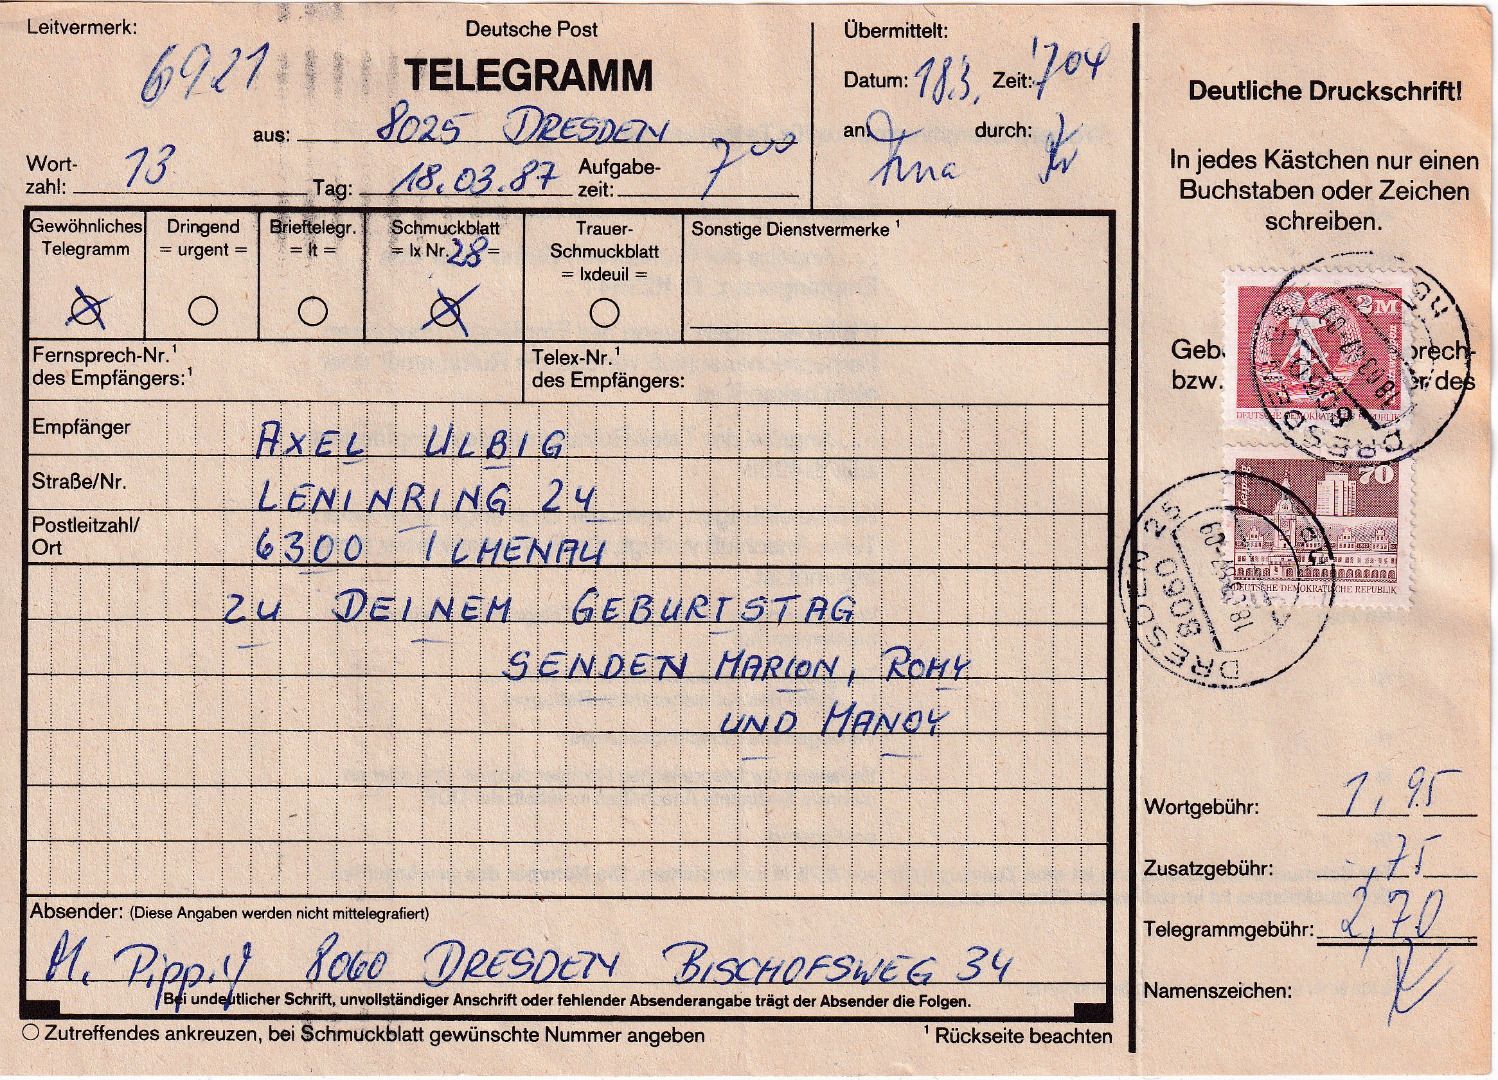 Leitvermerk:
6921
Deutsche Post
TELEGRAMM
aus: 8025 DRESDEN
Wort-
zahl: 13
Tag: 18.03.87
Aufgabe-
zeit: 7 00
Übermittelt:
Datum: 18.3. Zeit: 704
an: durch:
Gewöhnliches
Telegramm
Dringend
= urgent =
Brieftelegr.
= lt =
Schmuckblatt
= lx Nr. 28 =
Trauer-
Schmuckblatt
= lxdeuil =
Sonstige Dienstvermerke ¹
Fernsprech-Nr.¹
des Empfängers:¹
Telex-Nr.¹
des Empfängers:
Empfänger AXEL ULBIG
Straße/Nr. LENINRING 24
Postleitzahl/
Ort 6300 ILMENAU
ZU DEINEM GEBURTSTAG
SENDEN MARION, ROMY
UND MANDY
Absender: (Diese Angaben werden nicht mittelegrafiert)
M. 8060 DRESDEN BISCHOFSWEG 34
Bei undeutlicher Schrift, unvollständiger Anschrift oder fehlender Absenderangabe trägt der Absender die Folgen.
Zutreffendes ankreuzen, bei Schmuckblatt gewünschte Nummer angeben
¹ Rückseite beachten
Deutliche Druckschrift!
In jedes Kästchen nur einen
Buchstaben oder Zeichen
schreiben.
2 M
DEUTSCHE DEMOKRATISCHE REPUBLIK
DRESDEN
8060
18.03.87
70
Leipzig
DEUTSCHE DEMOKRATISCHE REPUBLIK
DRESDEN 25
8060
18.03.87
Wortgebühr: 1,95
Zusatzgebühr: ,75
Telegrammgebühr: 2,70
Namenszeichen: